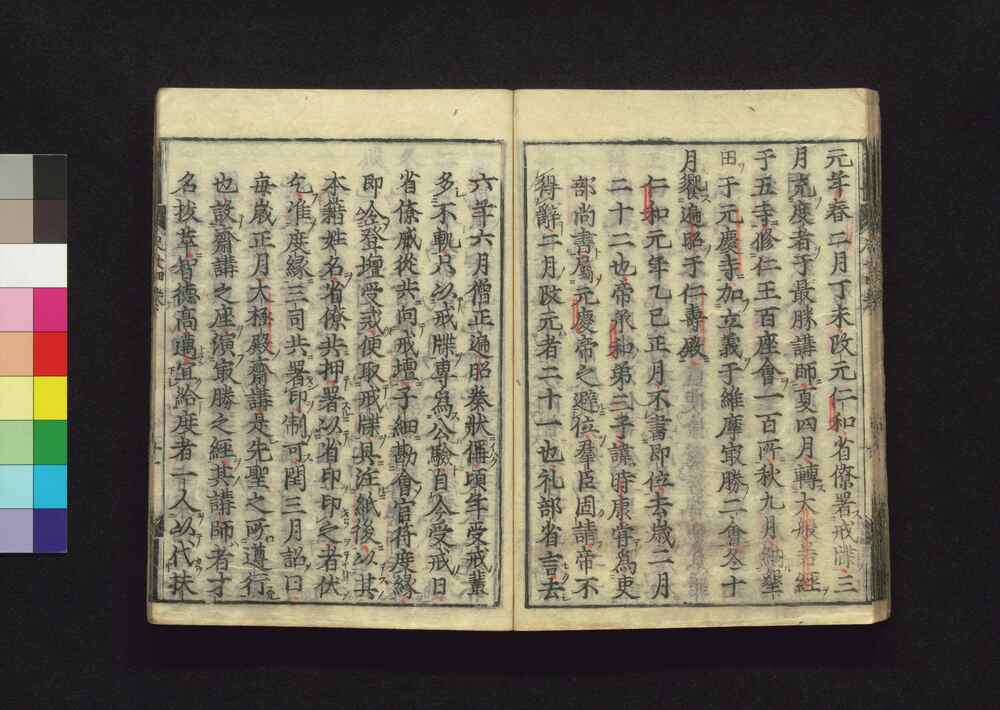 元年春二月丁未改元仁和省僚署戒牒三
月充度者于最勝講師夏四月轉大般若經
于五寺修仁王百座會一百所秋九月納墾
田于元慶寺加立義于維摩最勝二會冬十
月饗遍昭于仁壽殿
仁和元年乙巳正月不書即位去歲二月
二十二也帝承和弟三子諱時康嘗爲吏
部尚書屬元慶帝之避位羣臣固請帝不
得辭二月改元者二十一也礼部省言去
六年六月僧正遍昭奏狀偁頃年受戒輩
多不軌只以戒牒專爲公驗自今受戒日
省僚威從共向戒壇子細勘會官符度緣
即令登壇受戒便取戒牒具注紙後以其
本籍姓名省僚共押署以省印印之者伏
乞准度緣三司共署印制可閏三月詔曰
每歲正月大極殿齋講是先聖之所遵行
也說齋講之座演最勝之經其講師者才
名拔萃耆德高邁宜給度者一人以代扶